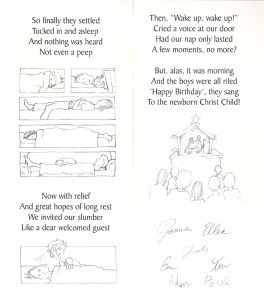 So finally they settled
Tucked in and asleep
And nothing was heard
Not even a peep
Now with relief
And great hopes of long rest
We invited our slumber
Like a dear welcomed guest
Then, "Wake up, wake up!"
Cried a voice at our door
Had our nap only lasted
A few moments, no more?
But, alas, it was morning
And the boys were all riled
'Happy Birthday', they sang
To the newborn Christ Child!